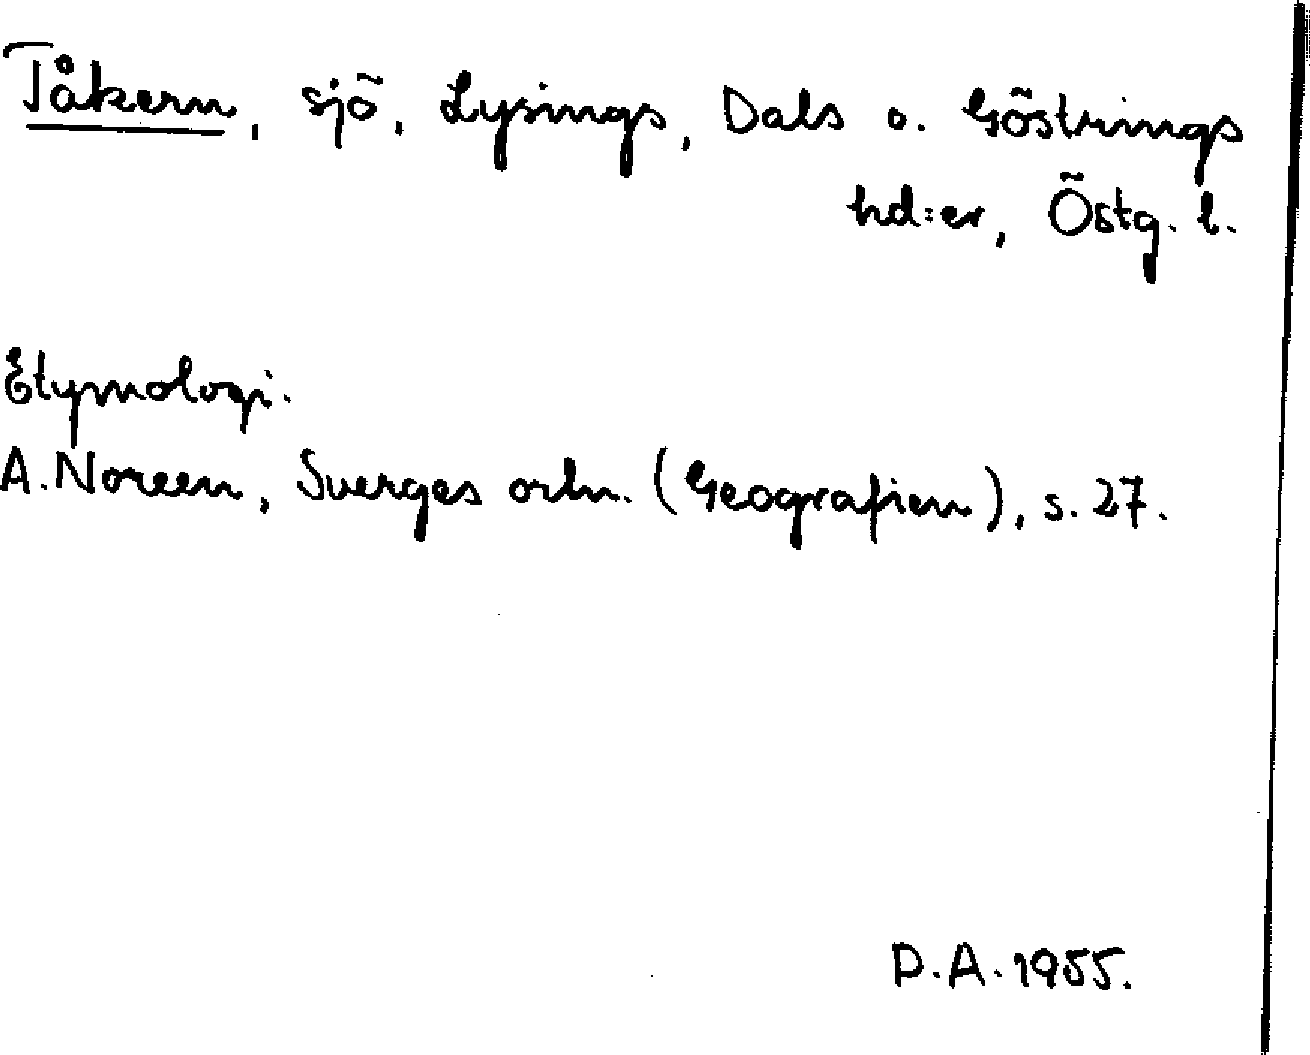 Tåkern, sjö, Lysings, Dals o. Göstrings
hd:er, Östg. l.
Etymologi.
A. Noreen, Sverges ortn. (Geografien), s. 27.
D.A. 1955.